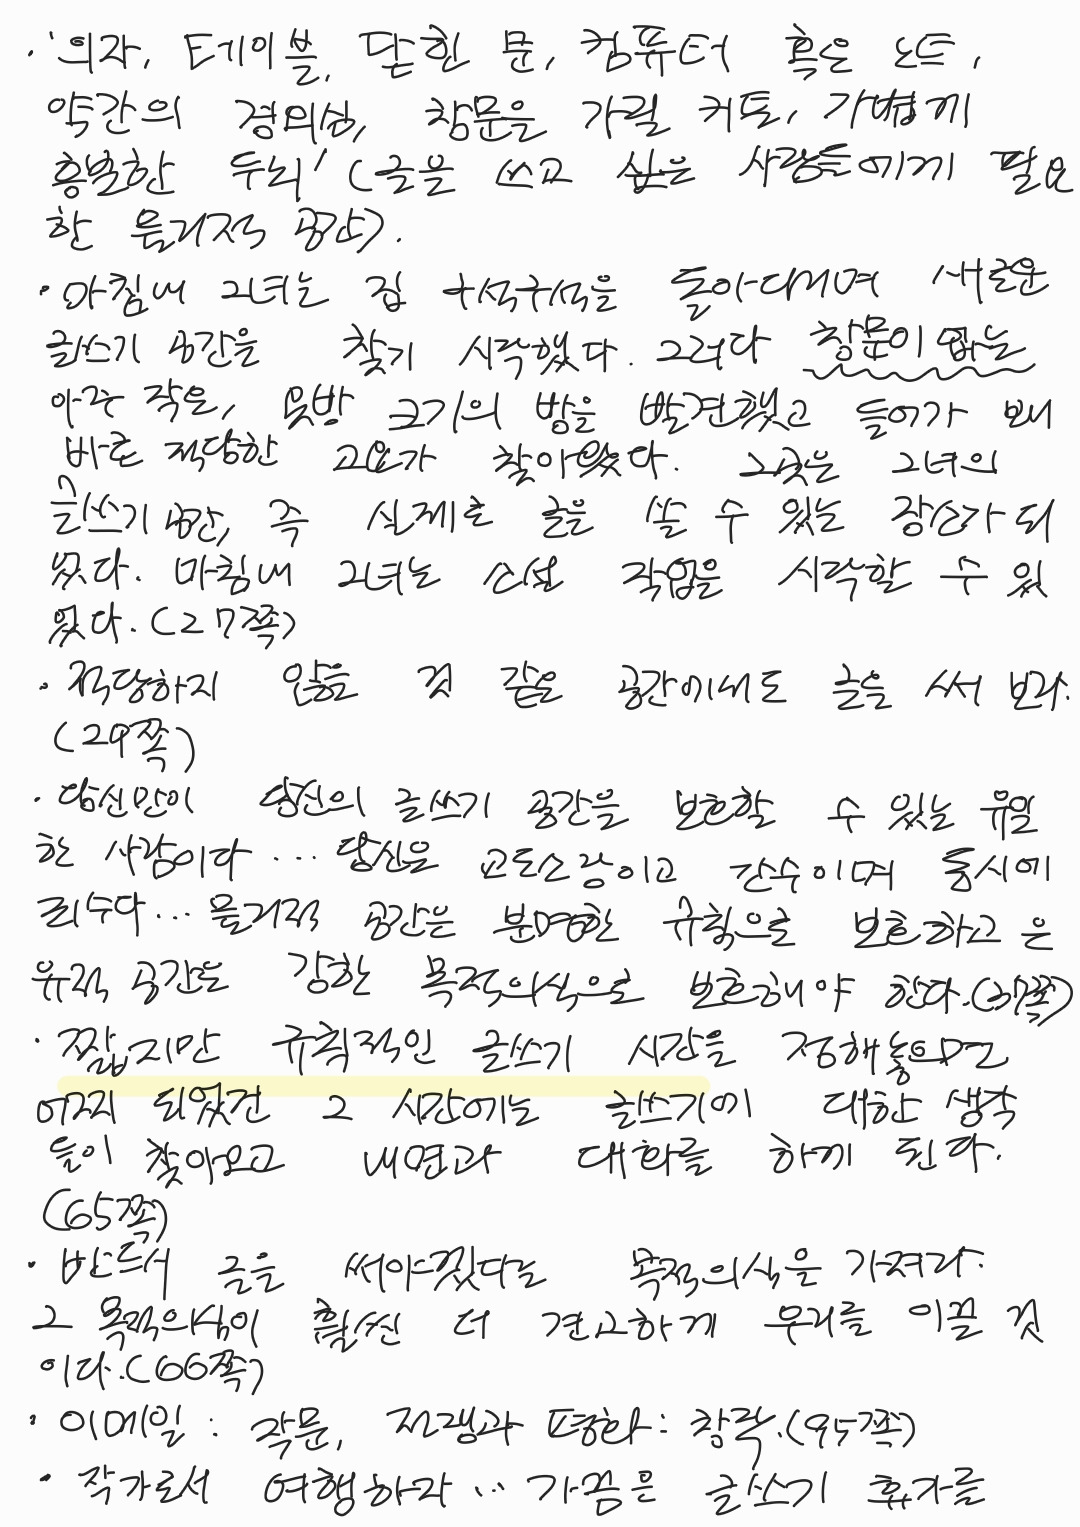 · '의자, 테이블, 닫힌 문, 컴퓨터 혹은 노트,
약간의 결의심, 창문을 가릴 커튼, 가볍게
흥분한 두뇌' (글을 쓰고 싶은 사람들에게 필요
한 물리적 공간).
· 마침내 그녀는 집 구석구석을 돌아다니며 새로운
글쓰기 공간을 찾기 시작했다. 그러다 창문이 없는
아주 작은, 옷방 크기의 방을 발견했고 들어가 보니
바로 적당한 고요가 찾아왔다. 그곳은 그녀의
글쓰기 공간, 즉 실제로 글을 쓸 수 있는 장소가 되
었다. 마침내 그녀는 소설 작업을 시작할 수 있
었다. (27쪽)
· 적당하지 않을 것 같은 공간에서도 글을 써 보라.
(29쪽)
· 당신만이 당신의 글쓰기 공간을 보호할 수 있는 유일
한 사람이다 ... 당신은 교도소장이고 간수이며 동시에
죄수다... 물리적 공간은 분명한 규칙으로 보호하고 은
유적 공간은 강한 목적의식으로 보호해야 한다.(37쪽)
· 짧지만 규칙적인 글쓰기 시간을 정해놓으면
어찌 되었건 그 시간에는 글쓰기에 대한 생각
들이 찾아오고 내면과 대화를 하게 된다.
(65쪽)
· 반드시 글을 써야겠다는 목적의식을 가져라.
그 목적의식이 훨씬 더 견고하게 우리를 이끌 것
이다.(66쪽)
· 이메일 : 작문, 전쟁과 평화 : 창작.(95쪽)
· 작가로서 여행하라 ... 가끔은 글쓰기 휴가를